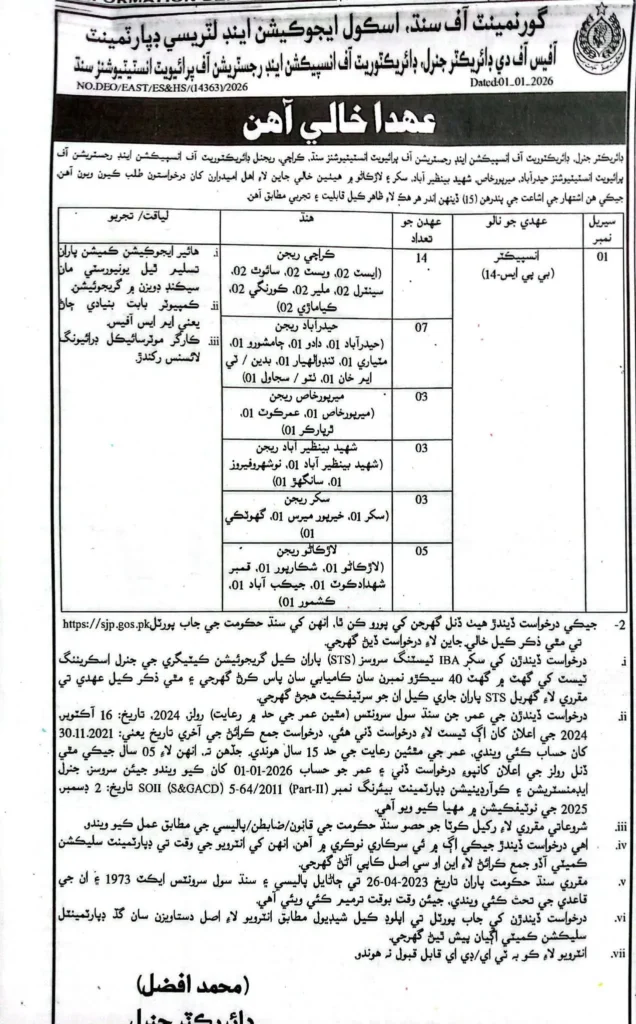 گورنمينٽ آف سنڌ، اسڪول ايجوڪيشن اينڊ لٽريسي ڊپارٽمينٽ
آفيس آف دي ڊائريڪٽر جنرل، ڊائريڪٽوريٽ آف انسپيڪشن اينڊ رجسٽريشن آف پرائيويٽ انسٽيٽيوشنز سنڌ
NO.DEO/EAST/ES&HS/(14363)/2026
Dated:01-01-2026
عهدا خالي آهن
ڊائريڪٽر جنرل، ڊائريڪٽوريٽ آف انسپيڪشن اينڊ رجسٽريشن آف پرائيويٽ انسٽيٽيوشنز سنڌ، ڪراچي، ريجنل ڊائريڪٽوريٽ آف انسپيڪشن اينڊ رجسٽريشن آف
پرائيويٽ انسٽيٽيوشنز حيدرآباد، ميرپورخاص، شهيد بينظيرآباد، سکر ۽ لاڙڪاڻو ۾ هيٺين خالي جاين لاءِ اهل اميدوارن کان درخواستون طلب ڪيون ويون آهن.
جيڪي هن اشتهار جي اشاعت جي پندرهن (15) ڏينهن اندر هر هڪ لاءِ ظاهر ڪيل قابليت ۽ تجربي مطابق آهن.
سيريل نمبر
عهدي جو نالو
عهدن جو تعداد
هنڌ
لياقت/ تجربو
01
انسپيڪٽر
(بي پي ايس-14)
14
ڪراچي ريجن
(ايسٽ 02، ويسٽ 02، سائوٿ 02،
سينٽرل 02، ملير 02، ڪورنگي 02،
ڪياماڙي 02)
i. هائير ايجوڪيشن ڪميشن پاران
تسليم ٿيل يونيورسٽي مان
سيڪنڊ ڊويزن ۾ گريجوئيشن.
ii. ڪمپيوٽر بابت بنيادي ڄاڻ
يعني ايم ايس آفيس.
iii. ڪارگر موٽرسائيڪل ڊرائيونگ
لائسنس رکندڙ.
07
حيدرآباد ريجن
(حيدرآباد 01، دادو 01، ڄامشورو 01،
مٽياري 01، ٽنڊوالهيار 01، بدين / ٽي
ايم خان 01، ٺٽو / سجاول 01)
03
ميرپورخاص ريجن
(ميرپورخاص 01، عمرڪوٽ 01،
ٿرپارڪر 01)
03
شهيد بينظير آباد ريجن
(شهيد بينظير آباد 01، نوشهروفيروز
01، سانگهڙ 01)
03
سکر ريجن
(سکر 01، خيرپور ميرس 01، گهوٽڪي
01)
05
لاڙڪاڻو ريجن
(لاڙڪاڻو 01، شڪارپور 01، قمبر
شهدادڪوٽ 01، جيڪب آباد 01،
ڪشمور 01)
2- جيڪي درخواست ڏيندڙ هيٺ ڏنل گهرجن کي پورو ڪن ٿا، انهن کي سنڌ حڪومت جي جاب پورٽل https://sjp.gos.pk
تي مٿي ذڪر ڪيل خالي جاين لاءِ درخواست ڏيڻ گهرجي.
i. درخواست ڏيندڙن کي سکر IBA ٽيسٽنگ سروسز (STS) پاران ڪيل گريجوئيشن ڪيٽيگري جي جنرل اسڪريننگ
ٽيسٽ کي گهٽ ۾ گهٽ 40 سيڪڙو نمبرن سان ڪاميابي سان پاس ڪرڻ گهرجي ۽ مٿي ذڪر ڪيل عهدي تي
مقرري لاءِ گهربل STS پاران جاري ڪيل ان جو سرٽيفڪيٽ هجڻ گهرجي.
ii. درخواست ڏيندڙن جي عمر، جن سنڌ سول سرونٽس (مٿين عمر جي حد ۾ رعايت) رولز، 2024، تاريخ: 16 آڪٽوبر،
2024 جي اعلان کان اڳ ٽيسٽ لاءِ درخواست ڏني هئي، درخواست جمع ڪرائڻ جي آخري تاريخ يعني: 30.11.2021
کان حساب ڪئي ويندي. عمر جي مٿئين رعايت جي حد 15 سال هوندي، جڏهن ته انهن لاءِ 05 سال جيڪي مٿي
ڏنل رولز جي اعلان کانپوءِ درخواست ڏني ۽ عمر جو حساب 01-01-2026 کان ڪيو ويندو جيئن سروسز، جنرل
ايڊمنسٽريشن ۽ ڪوآرڊينيشن ڊپارٽمينٽ بيئرنگ نمبر SOII (S&GACD) 5-64/2011 (Part-II) تاريخ: 2 ڊسمبر،
2025 جي نوٽيفڪيشن ۾ مهيا ڪيو ويو آهي.
iii. شروعاتي مقرري لاءِ رکيل ڪوٽا جو حصو سنڌ حڪومت جي قانون/ضابطن/پاليسي جي مطابق عمل ڪيو ويندو
iv. اهي درخواست ڏيندڙ جيڪي اڳ ۾ ئي سرڪاري نوڪري ۾ آهن، انهن کي انٽرويو جي وقت تي ڊپارٽمينٽ سليڪشن
ڪميٽي آڏو جمع ڪرائڻ لاءِ اين او سي اصل ڪاپي آڻڻ گهرجي.
v. مقرري سنڌ حڪومت پاران تاريخ 26-04-2023 تي ڄاڻايل پاليسي ۽ سنڌ سول سرونٽس ايڪٽ 1973 ۽ ان جي
قاعدي جي تحت ڪئي ويندي، جيئن وقت بوقت ترميم ڪئي ويئي آهي.
vi. درخواست ڏيندڙن کي جاب پورٽل تي اپلوڊ ڪيل شيڊيول مطابق انٽرويو لاءِ اصل دستاويزن سان گڏ ڊپارٽمينٽل
سليڪشن ڪميٽي اڳيان پيش ٿيڻ گهرجي.
vii. انٽرويو لاءِ ڪو به ٽي اي/ڊي اي قابل قبول نه هوندو
(محمد افضل)
ڊائريڪٽر جنرل